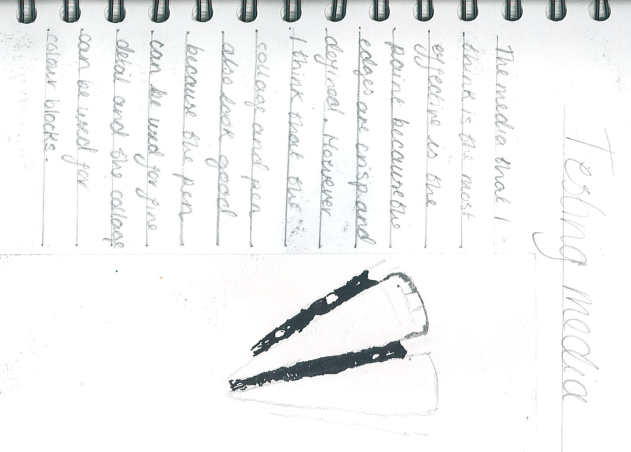 Testing media
The media that I
think is the most
effective is the
paint because the
edges are crisp and
defined. However
I think that the
collage and pen
also look good
because the pen
can be used for fine
detail and the collage
can be used for
colour blocks.